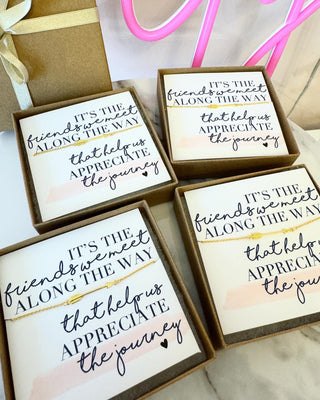 IT'S THE
friends we meet
ALONG THE WAY
that help us
APPRECIATE
the journey
IT'S THE
friends we meet
ALONG THE WAY
that help us
APPRECIATE
the journey
IT'S THE
friends we meet
ALONG THE WAY
that help us
APPRECIATE
the journey
IT'S THE
friends we meet
ALONG THE WAY
that help us
APPRECIATE
the journey